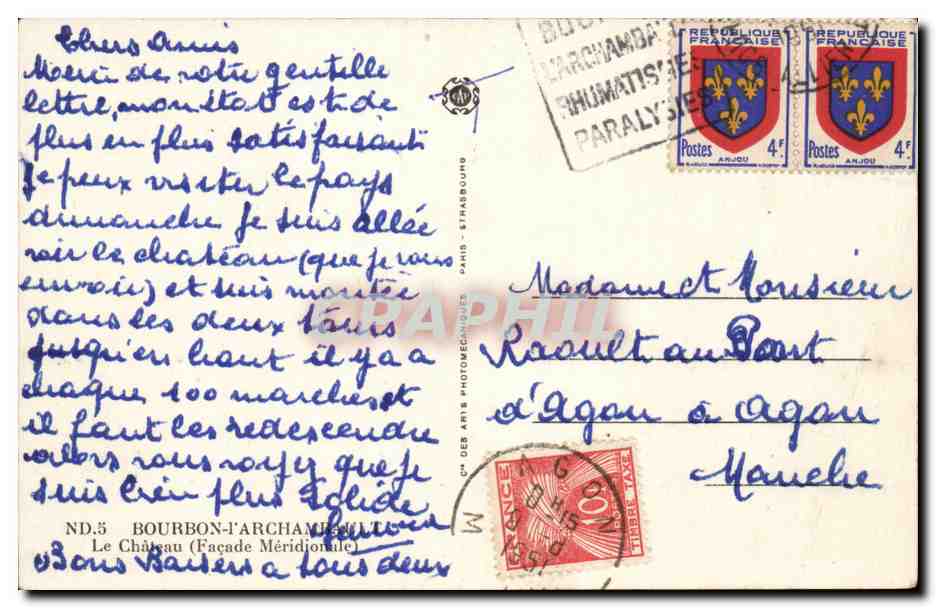 Chers Amis
Merci de votre gentille
lettre, mon état est de
plus en plus satisfaisant
Je peux visiter le pays
dimanche je suis allée
voir le chateau (que je vous
envoie) et suis montée
dans les deux tours
jusqu'en haut il y a a
chaque 100 marches et
il faut les redescendre
alors vous voyez que je
suis bien plus solide
Bons Baisers a tous deux
ND.5 BOURBON-l'ARCHAMBAULT
Le Château (Façade Méridionale)
Cie DES ARTS PHOTOMECANIQUES PARIS - STRASBOURG
CAP
L'ARCHAMBA
RHUMATISMES
PARALYSIES
REPUBLIQUE
FRANÇAISE
Postes 4F.
ANJOU
REPUBLIQUE
FRANÇAISE
Postes 4F.
ANJOU
Madame et Monsieur
Raoult au Pont
d'Agon à Agon
Manche
FRANCE
10F
POSTES
TIMBRE TAXE
AGON
1951
DELCAMPHIL